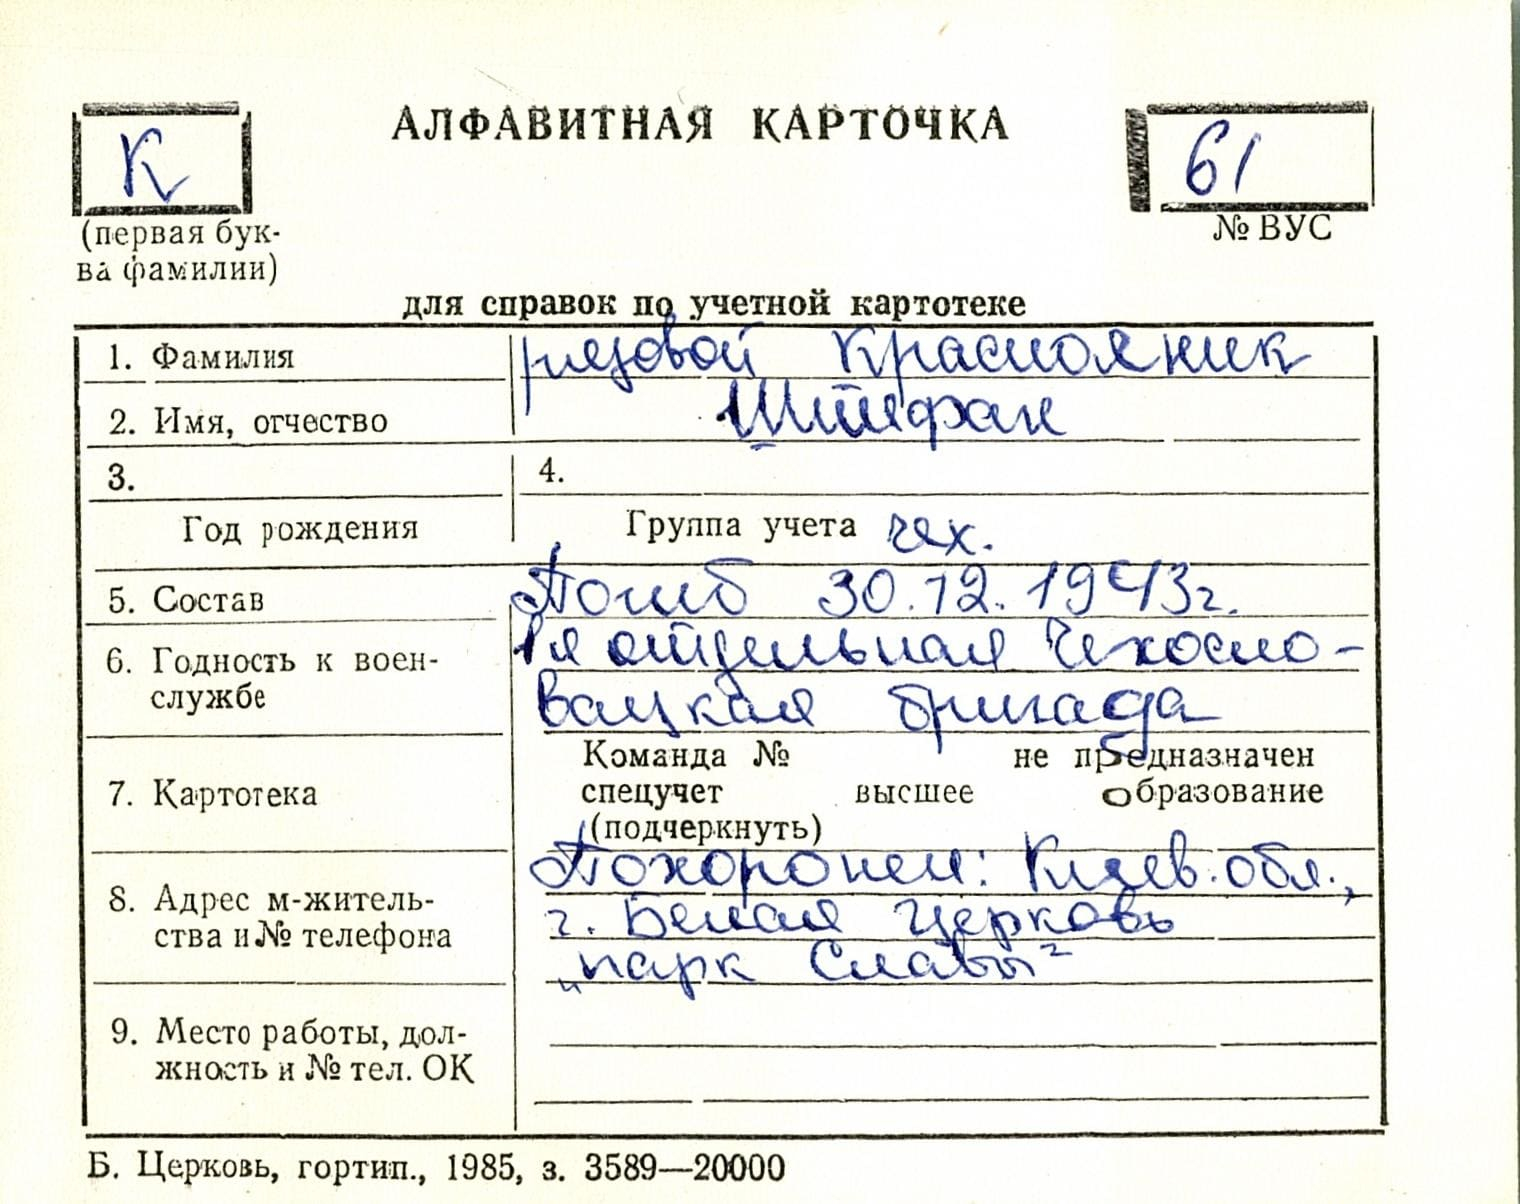 АЛФАВИТНАЯ КАРТОЧКА
К
61
(первая бук-
ва фамилии)
№ ВУС
для справок по учетной картотеке
1. Фамилия рядовой Краснояник
2. Имя, отчество Штефан
3. 4.
Год рождения Группа учета чех.
5. Состав Погиб 30.12.1943г.
6. Годность к воен-
службе
1я отдельная Чехосло-
вацкая бригада
Команда № не предназначен
7. Картотека спецучет высшее образование
(подчеркнуть)
Похоронен: Киев. обл.,
8. Адрес м-житель-
ства и № телефона
г. Белая Церковь
„парк Славы"
9. Место работы, дол-
жность и № тел. ОК
Б. Церковь, гортип., 1985, з. 3589—20000